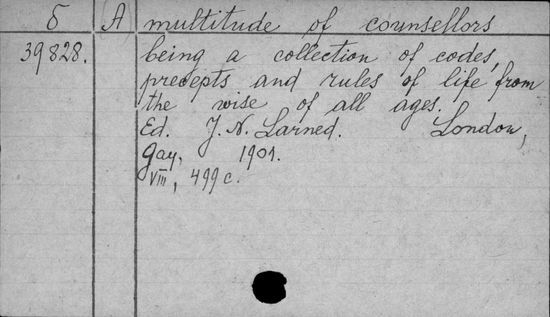 б (A) multitude of counsellors
39828. being a collection of codes,
precepts and rules of life from
the wise of all ages.
Ed. J. N. Larned. London,
Gay, 1901.
VIII, 499 c.